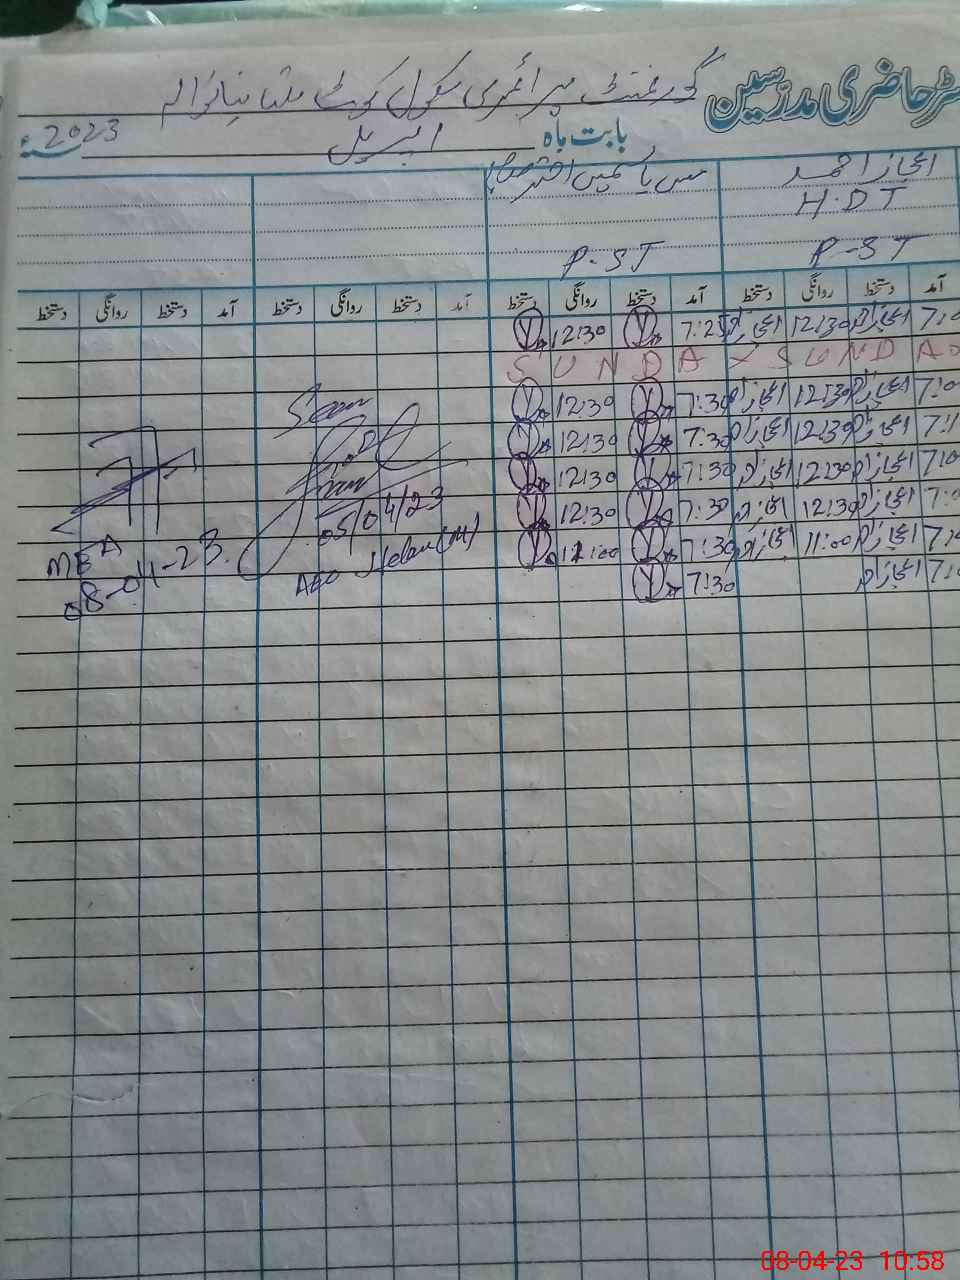 رجسٹر حاضری مدرسین گورنمنٹ پرائمری سکول کوٹ
بابت ماہ اپریل سنہ 2023
اعجاز احمد مس یاسمین اختر
H.D.T
P-ST P-ST
آمد دستخط روانگی دستخط آمد دستخط روانگی دستخط آمد دستخط روانگی دستخط آمد دستخط روانگی دستخط
اعجاز 12:30 اعجاز 7:25 Y 12:30 Y
SUNDAY SUNDA
اعجاز 12:30 اعجاز 7:30 Y 12:30 Y
اعجاز 12:30 اعجاز 7:30 Y 12:30 Y
اعجاز 12:30 اعجاز 7:30 Y 12:30 Y
اعجاز 12:30 اعجاز 7:30 Y 12:30 Y
اعجاز 11:00 اعجاز 7:30 Y 11:00 Y
اعجاز 7:30 Y
Seen
05/04/23
AEO
MEA
08-04-23
08-04-23 10:58